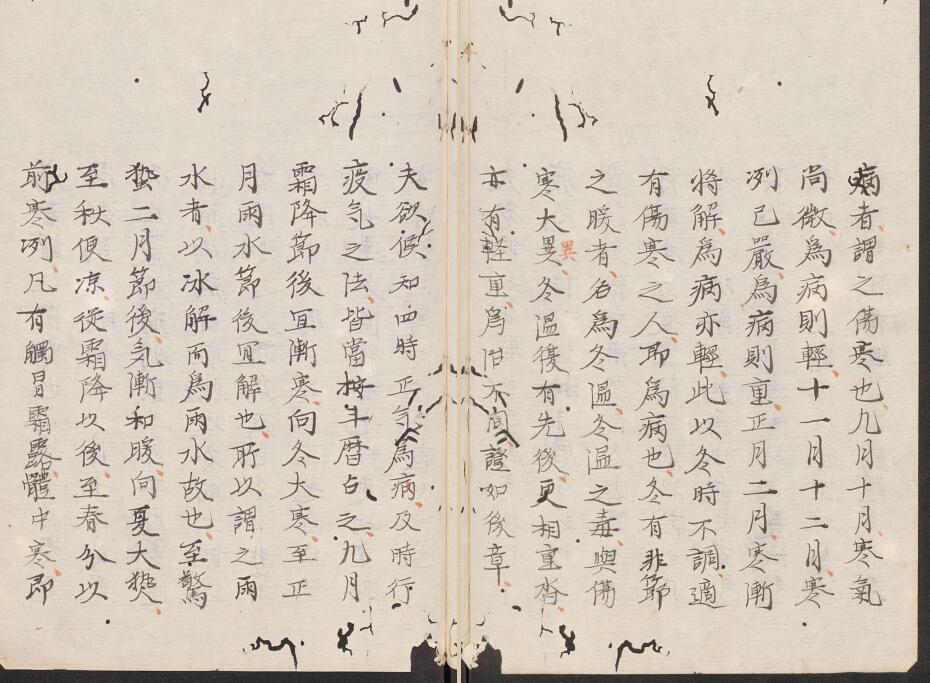 病者謂之傷寒也九月十月寒氣
尚微爲病則輕十一月十二月寒
冽已嚴爲病則重正月二月寒漸
將解爲病亦輕此以冬時不調適
有傷寒之人即爲病也冬有非節
之暖者名爲冬温冬温之毒與傷
寒大異異冬温復有先後更相重沓
亦有輕重爲治不同證如後章
夫欲候知四時正气爲病及時行
疫气之法皆當按斗暦占之九月
霜降節後宜漸寒向冬大寒至正
月雨水節後宜解也所以謂之雨
水者以冰解而爲雨水故也至驚
蟄二月節後气漸和暖向夏大熱
至秋便凉從霜降以後至春分以
前寒冽凡有觸冒霜露體中寒即